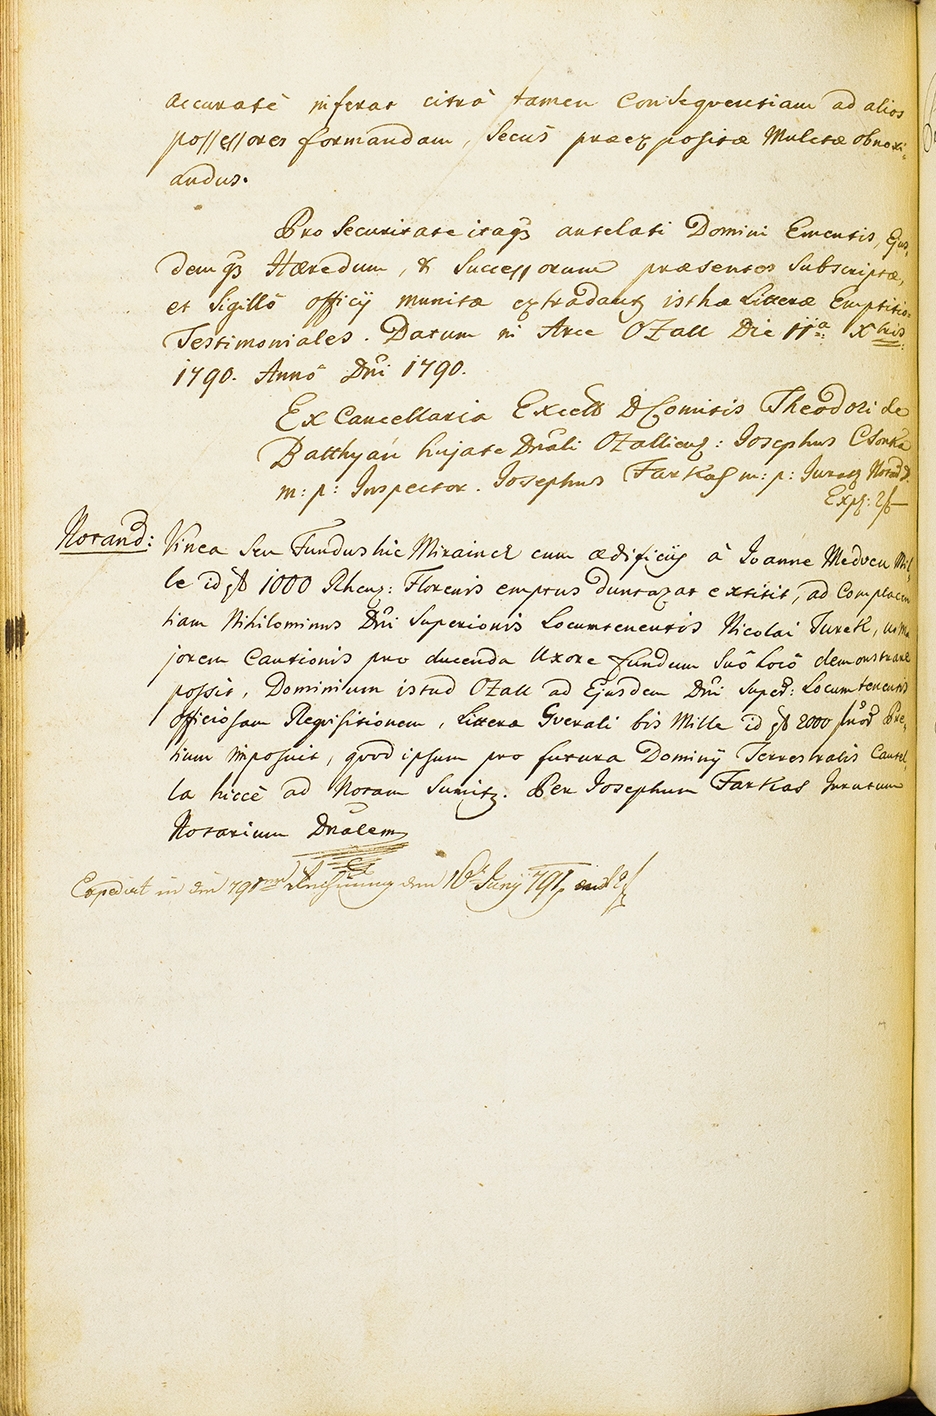 accuratè inferat citrà tamen Conseqventiam ad alios
possessores formandam, Secùs præexpositæ Mulctæ obnoxi-
andus.
Pro Securitate itaqs antelati Domini Ementis, Ejus-
demqs Hæredum, & Successorum præsentes Subscriptæ,
et Sigillô officÿ munitæ extradantur isthæ Litteræ Emptitio-
Testimoniales. Datum in Arce OZall Die 11a Xbris
1790. Annô Dni 1790.
Ex Cancellaria Excell D Comitis Theodori de
Batthyán hujate Dnali OZalliens: Josephus Csonka
m: p: Inspector. Josephus FarKas m: p: Jurat Notar D.
Exp: 2f—
Notand: Vinea Seu Fundus hic Mirainct cum ædificiÿs à Joanne Medven Mil-
le id st 1000 Rhen: Florenis emptus duntaxat extitit, ad Complacen
tiam Nihilominus Dni Superioris Locumtenentis Nicolai Turek, ut Ma
jorem Cautionis pro ducenda Uxore fundum Suô Locô demonstrare
possit, Dominium istud OZall ad Ejusdem Dni Super: Locumtenentis
officiosam Reqvisitionem, Litteræ Gverali bis Mille id st 2000 fnor Pre-
tium imposuit, qvod ipsum pro futura Dominÿ Terrestralis Cautel-
la hiccè ad Notam Sumitr. Per Josephum FarKas Juratum
Notarium Dnalem
Expedirt in die 791 Rechnung den 16t Junÿ 791